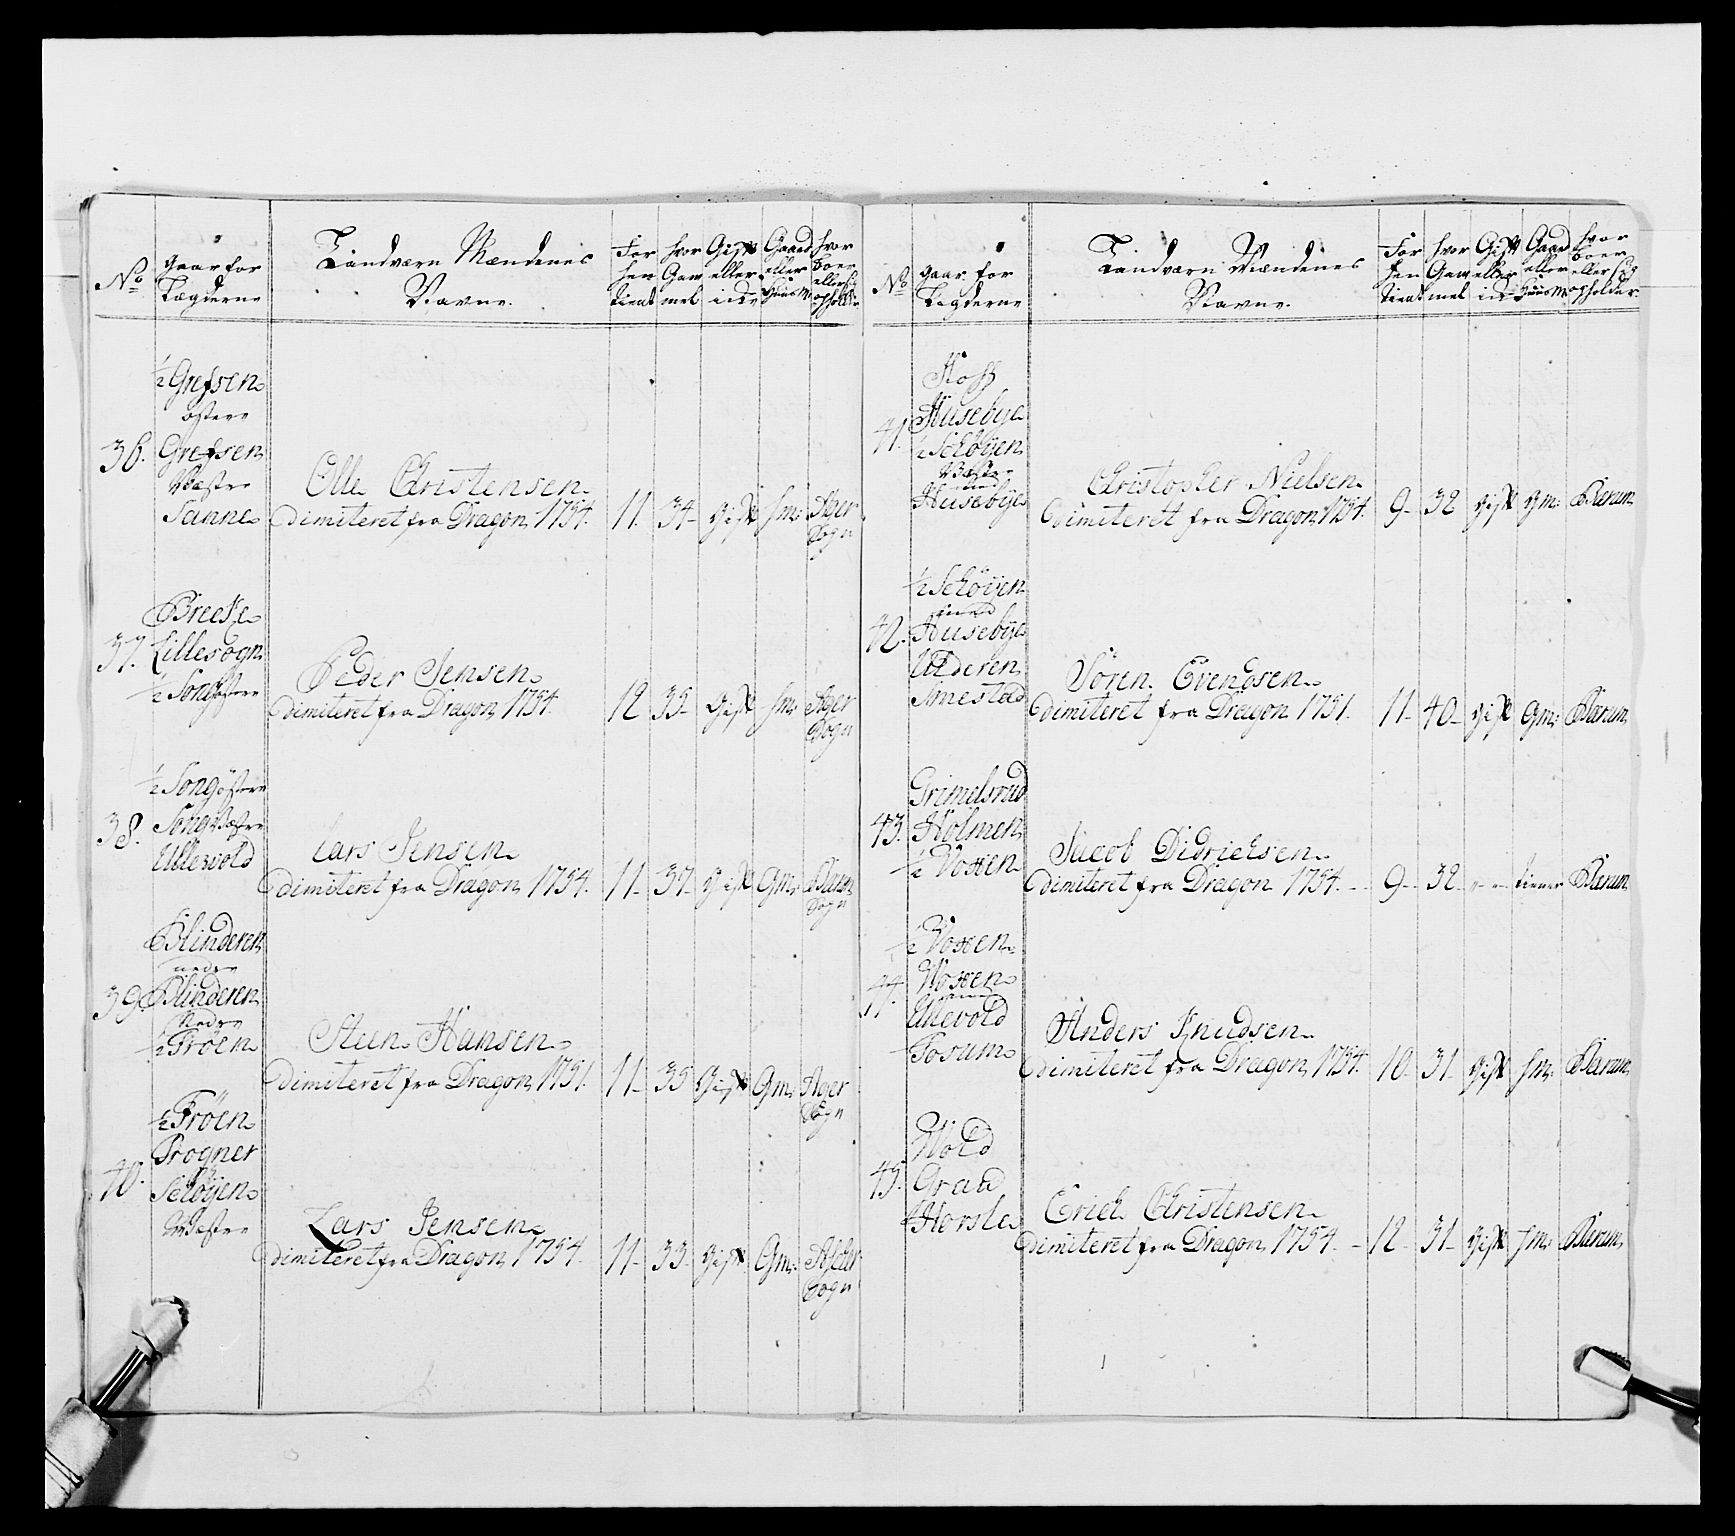 No
gaar for
Lægderne
Landværn Mændenes
Navne.
For
hen
tient
hvor
Gam
mel
Gift
eller
Gaard
eller
Huus M:
hvor
boer
eller sig
opholder
½ Grefsen
østere
36. Grefsen
Væstre
Sanne
Olle Christensen
dimiteret fra Dragon 1754. 11. 34 gift hm: Ager
Sogn
Breeke
37. Lillesogn
½ Song østre
Peder Jensen
dimiteret fra Dragon 1754. 12 35 gift hm: Ager
Sogn
½ Song østre
38. Song Væstre
Ullevold
Lars Jensen
dimiteret fra Dragon 1754. 11 37 gift Gm: Bærum
Sogn
Blinderen
39. Blinderen
Nedre
½ Frøen
Steen Hansen
dimiteret fra Dragon 1751. 11 35 Gift Gm: Ager
Sogn
½ Frøen
Frogner
40. Schøyen
Væstre
Lars Jensen
dimiteret fra Dragon 1754. 11 33 gift Gm:
Sogn
No
gaar for
Legderne
Landværn Mændenes
Navne.
For
hen
tient
hvor
Gam
mel
Gift
eller
Gaard
eller
Huus M:
hvor
boer
eller sig
opholder.
Hoff
Husebye
41. ½ Schøyen
Væstre
Husebye
Christopher Nielsen
dimiteret fra Dragon 1754. 9 32 gift gm: Bærum
½ Schøyen
med
42. Husebye
Ulderen
Smestad
Søren Evensen
dimiteret fra Dragon 1751. 11 40 gift Gm: Bærum
Grimelsrud
43. Holmen
½ Voxen
Jacob Didrichsen
dimiteret fra Dragon 1754. 9 32 " tiener Bærum
½ Voxen
44. Woxen
Ullevold
Fosum
Anders Knudsen
dimiteret fra Dragon 1754. 10 31 gift hm: Bærum
Wold
45. Grau
Horsle
Erich Christensen
dimiteret fra Dragon 1754. 12 31 gift hm: Bærum